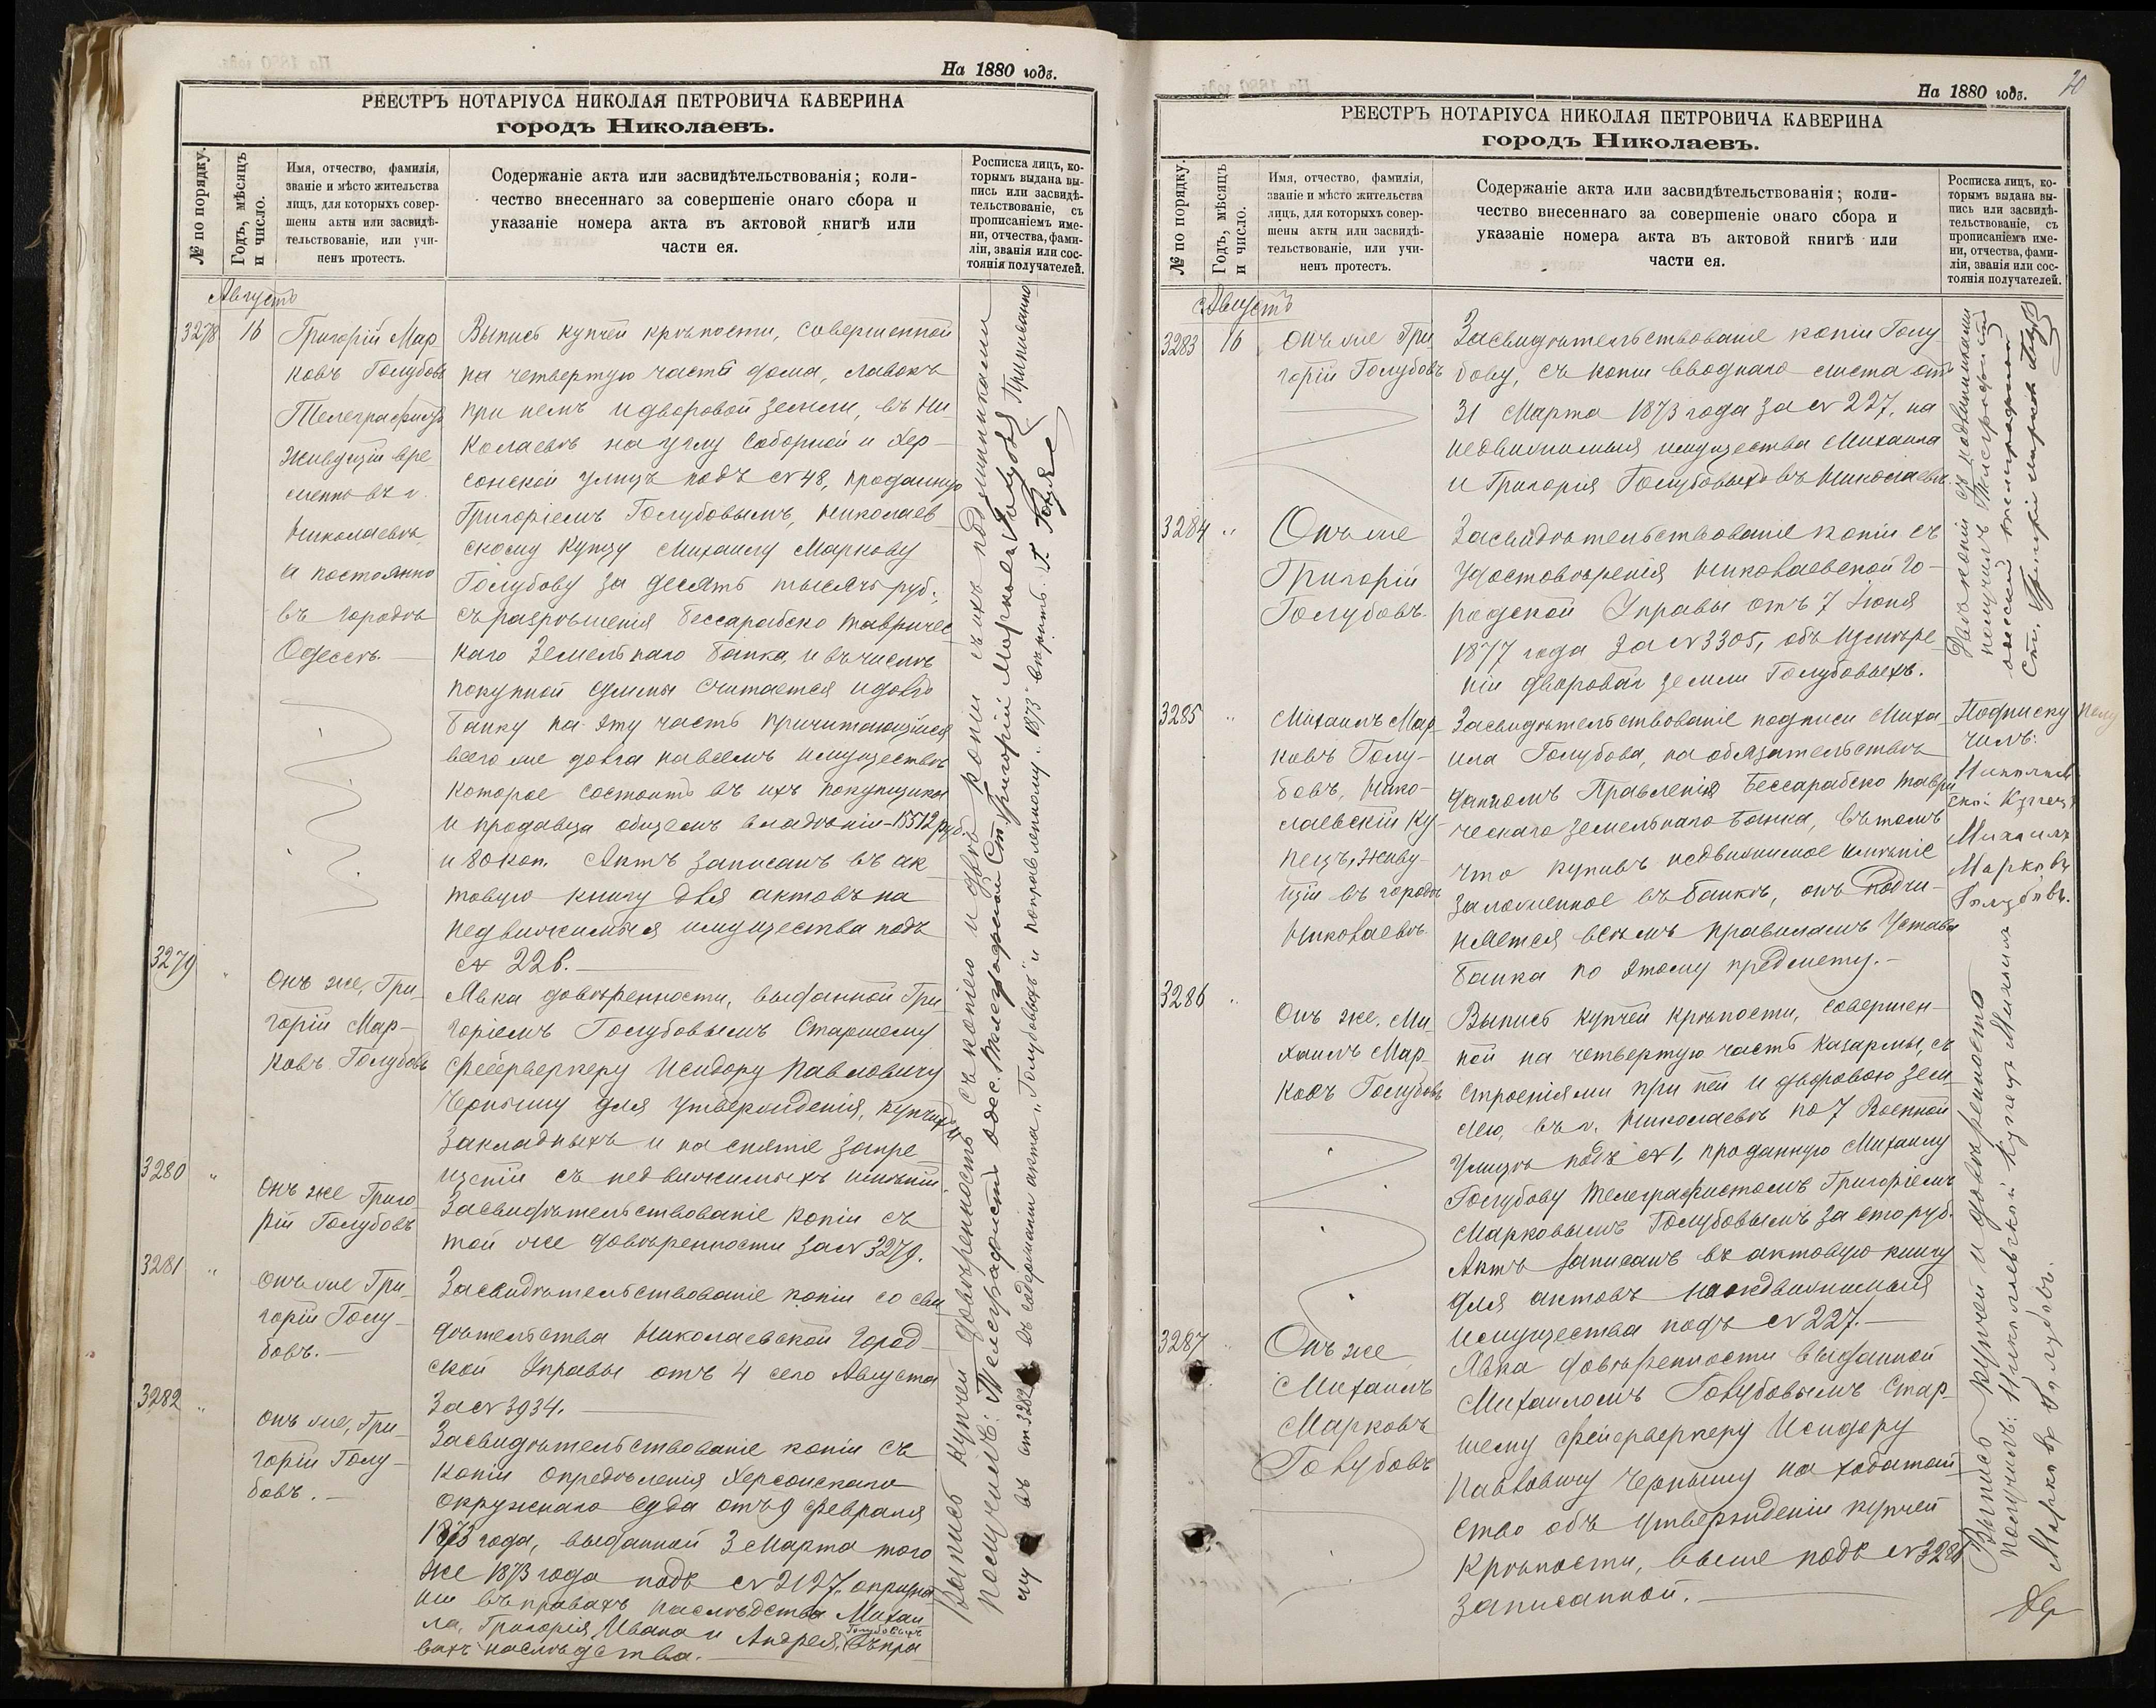 На 1880 годъ.
РЕЕСТРЪ НОТАРІУСА НИКОЛАЯ ПЕТРОВИЧА КАВЕРИНА
городъ Николаевъ.
№ по порядку.
Годъ, мѣсяцъ
и число.
Имя, отчество, фамилія,
званіе и мѣсто жительства
лицъ, для которыхъ совер-
шены акты или засвидѣ-
тельствованіе, или учи-
ненъ протестъ.
Содержаніе акта или засвидѣтельствованія; коли-
чество внесеннаго за совершеніе онаго сбора и
указаніе номера акта въ актовой книгѣ или
части ея.
Росписка лицъ, ко-
торымъ выдана вы-
пись или засвидѣ-
тельствованіе, съ
прописаніемъ име-
ни, отчества, фами-
ліи, званія или сос-
тоянія получателей.
Августъ
3278
16
Григорій Мар
ковъ Голубовъ
Телеграфистъ
живущій вре
менно въ г.
Николаевѣ
и постоянно
въ городѣ
Одессѣ.
Выпись купчей крѣпости, совершенной
на четвертую часть дома, лавокъ
при немъ и дворовой земли, въ Ни-
колаевѣ на углу Соборной и Хер-
сонской улицъ подъ № 48, проданную
Григоріемъ Голубовымъ, Николаев
скому купцу Михаилу Маркову
Голубову за десять тысячъ руб.,
съ разрѣшенія Бессарабско Тавричес
каго Земельнаго банка, и въ число
покупной суммы считается и долгъ
банку на эту часть причитающійся
всего же долга на всемъ имуществѣ
которое состоитъ въ ихъ покупщика
и продавца общемъ владѣніи – 15512 руб.
и 80 коп. Актъ записанъ въ ак
товую книгу для актовъ на
недвижимыя имущества подъ
№ 226.
3279
"
Онъ же, Гри
горій Мар-
ковъ Голубовъ
Явка довѣренности, выданной Гри
горіемъ Голубовымъ Старшему
фейерверкеру Исидору Павловичу
Чернышу для утвержденія, купчихъ,
закладныхъ и на снятіе запре
щеній съ недвижимыхъ имѣній.
3280
"
Онъ же Григо
рій Голубовъ
Засвидѣтельствованіе копіи съ
той же довѣренности за № 3279.
3281
"
Онъ же Гри-
горій Голу-
бовъ.
Засвидѣтельствованіе копіи со сви
дѣтельства Николаевской Город-
ской Управы отъ 4 сего Августа
за № 3934.
3282
"
Онъ же, Гри-
горій Голу-
бовъ.
Засвидѣтельствованіе копіи съ
копіи опредѣленія Херсонскаго
окружнаго Суда отъ 9 февраля
1873 года, выданной 3 Марта того
же 1873 года подъ № 2127,
въ правахъ наслѣдства Михаи
ла, Григорія, Ивана и Андрея, Голубовыхъ въ пра
вахъ наслѣдства.
Выпись купчей довѣренность съ копіею и двѣ копіи съ ихъ подлинниками
получилъ: Телеграфистъ Одес. Телеграфной Ст. Григорій Марковъ Голубовъ. Приписанно
му въ ст. 3282 и въ содержаніи акта „Голубовыхъ" и поправленному „1873" вѣрить.
На 1880 годъ.
20
РЕЕСТРЪ НОТАРІУСА НИКОЛАЯ ПЕТРОВИЧА КАВЕРИНА
городъ Николаевъ.
№ по порядку.
Годъ, мѣсяцъ
и число.
Имя, отчество, фамилія,
званіе и мѣсто жительства
лицъ, для которыхъ совер-
шены акты или засвидѣ-
тельствованіе, или учи-
ненъ протестъ.
Содержаніе акта или засвидѣтельствованія; коли-
чество внесеннаго за совершеніе онаго сбора и
указаніе номера акта въ актовой книгѣ или
части ея.
Росписка лицъ, ко-
торымъ выдана вы-
пись или засвидѣ-
тельствованіе, съ
прописаніемъ име-
ни, отчества, фами-
ліи, званія или сос-
тоянія получателей.
Августъ
3283
16
Онъ же Гри
горій Голубовъ
Засвидѣтельствованіе копіи Голу-
бову, съ копіи вводнаго листа отъ
31 Марта 1873 года за № 227, на
недвижимыя имущества Михаила
и Григорія Голубовыхъ въ Николаевѣ.
3284
"
Онъ же
Григорій
Голубовъ.
Засвидѣтельствованіе копіи съ
удостовѣренія Николаевской Го-
родской Управы отъ 7 Іюня
1877 года за № 3305, объ измѣре
ніи дворовой земли Голубовыхъ.
Двѣ копіи съ подлинниками
получилъ Телеграфистъ
3285
"
Михаилъ Мар
ковъ Голу-
бовъ, Нико-
лаевскій ку-
пецъ, живу-
щій въ городѣ
Николаевѣ.
Засвидѣтельствованіе подписи Миха-
ила Голубова, на обязательствѣ
данномъ Правленію Бессарабско Таври
ческаго земельнаго банка, въ томъ
что купивъ недвижимое имѣніе
заложенное въ банкѣ, онъ подчи-
няется всѣмъ правиламъ Устава
банка по этому предмету.
Подписку полу
чилъ:
Николаев
скій Купецъ
Михаилъ
Марковъ
Голубовъ.
3286
"
Онъ же, Ми-
хаилъ Мар-
ковъ Голубовъ
Выпись купчей крѣпости, совершен-
ной на четвертую часть казармы, съ
строеніями при ней и дворовою зем-
лею, въ г. Николаевѣ по 7 Военной
улицѣ подъ № 1, проданную Михаилу
Голубову Телеграфистомъ Григоріемъ
Марковымъ Голубовымъ за сто руб.
Актъ записанъ въ актовую книгу
для актовъ на недвижимыя
имущества подъ № 227.
3287
Онъ же
Михаилъ
Марковъ
Голубовъ
Явка довѣренности выданной
Михаиломъ Голубовымъ Стар-
шему фейерверкеру Исидору
Павловичу Чернышу на ходатай
ство объ утвержденіи купчей
крѣпости, выше подъ № 3286
записанной.
Выпись купчей и довѣренность
получилъ: Николаевскій Купецъ Михаилъ
Марковъ Голубовъ.